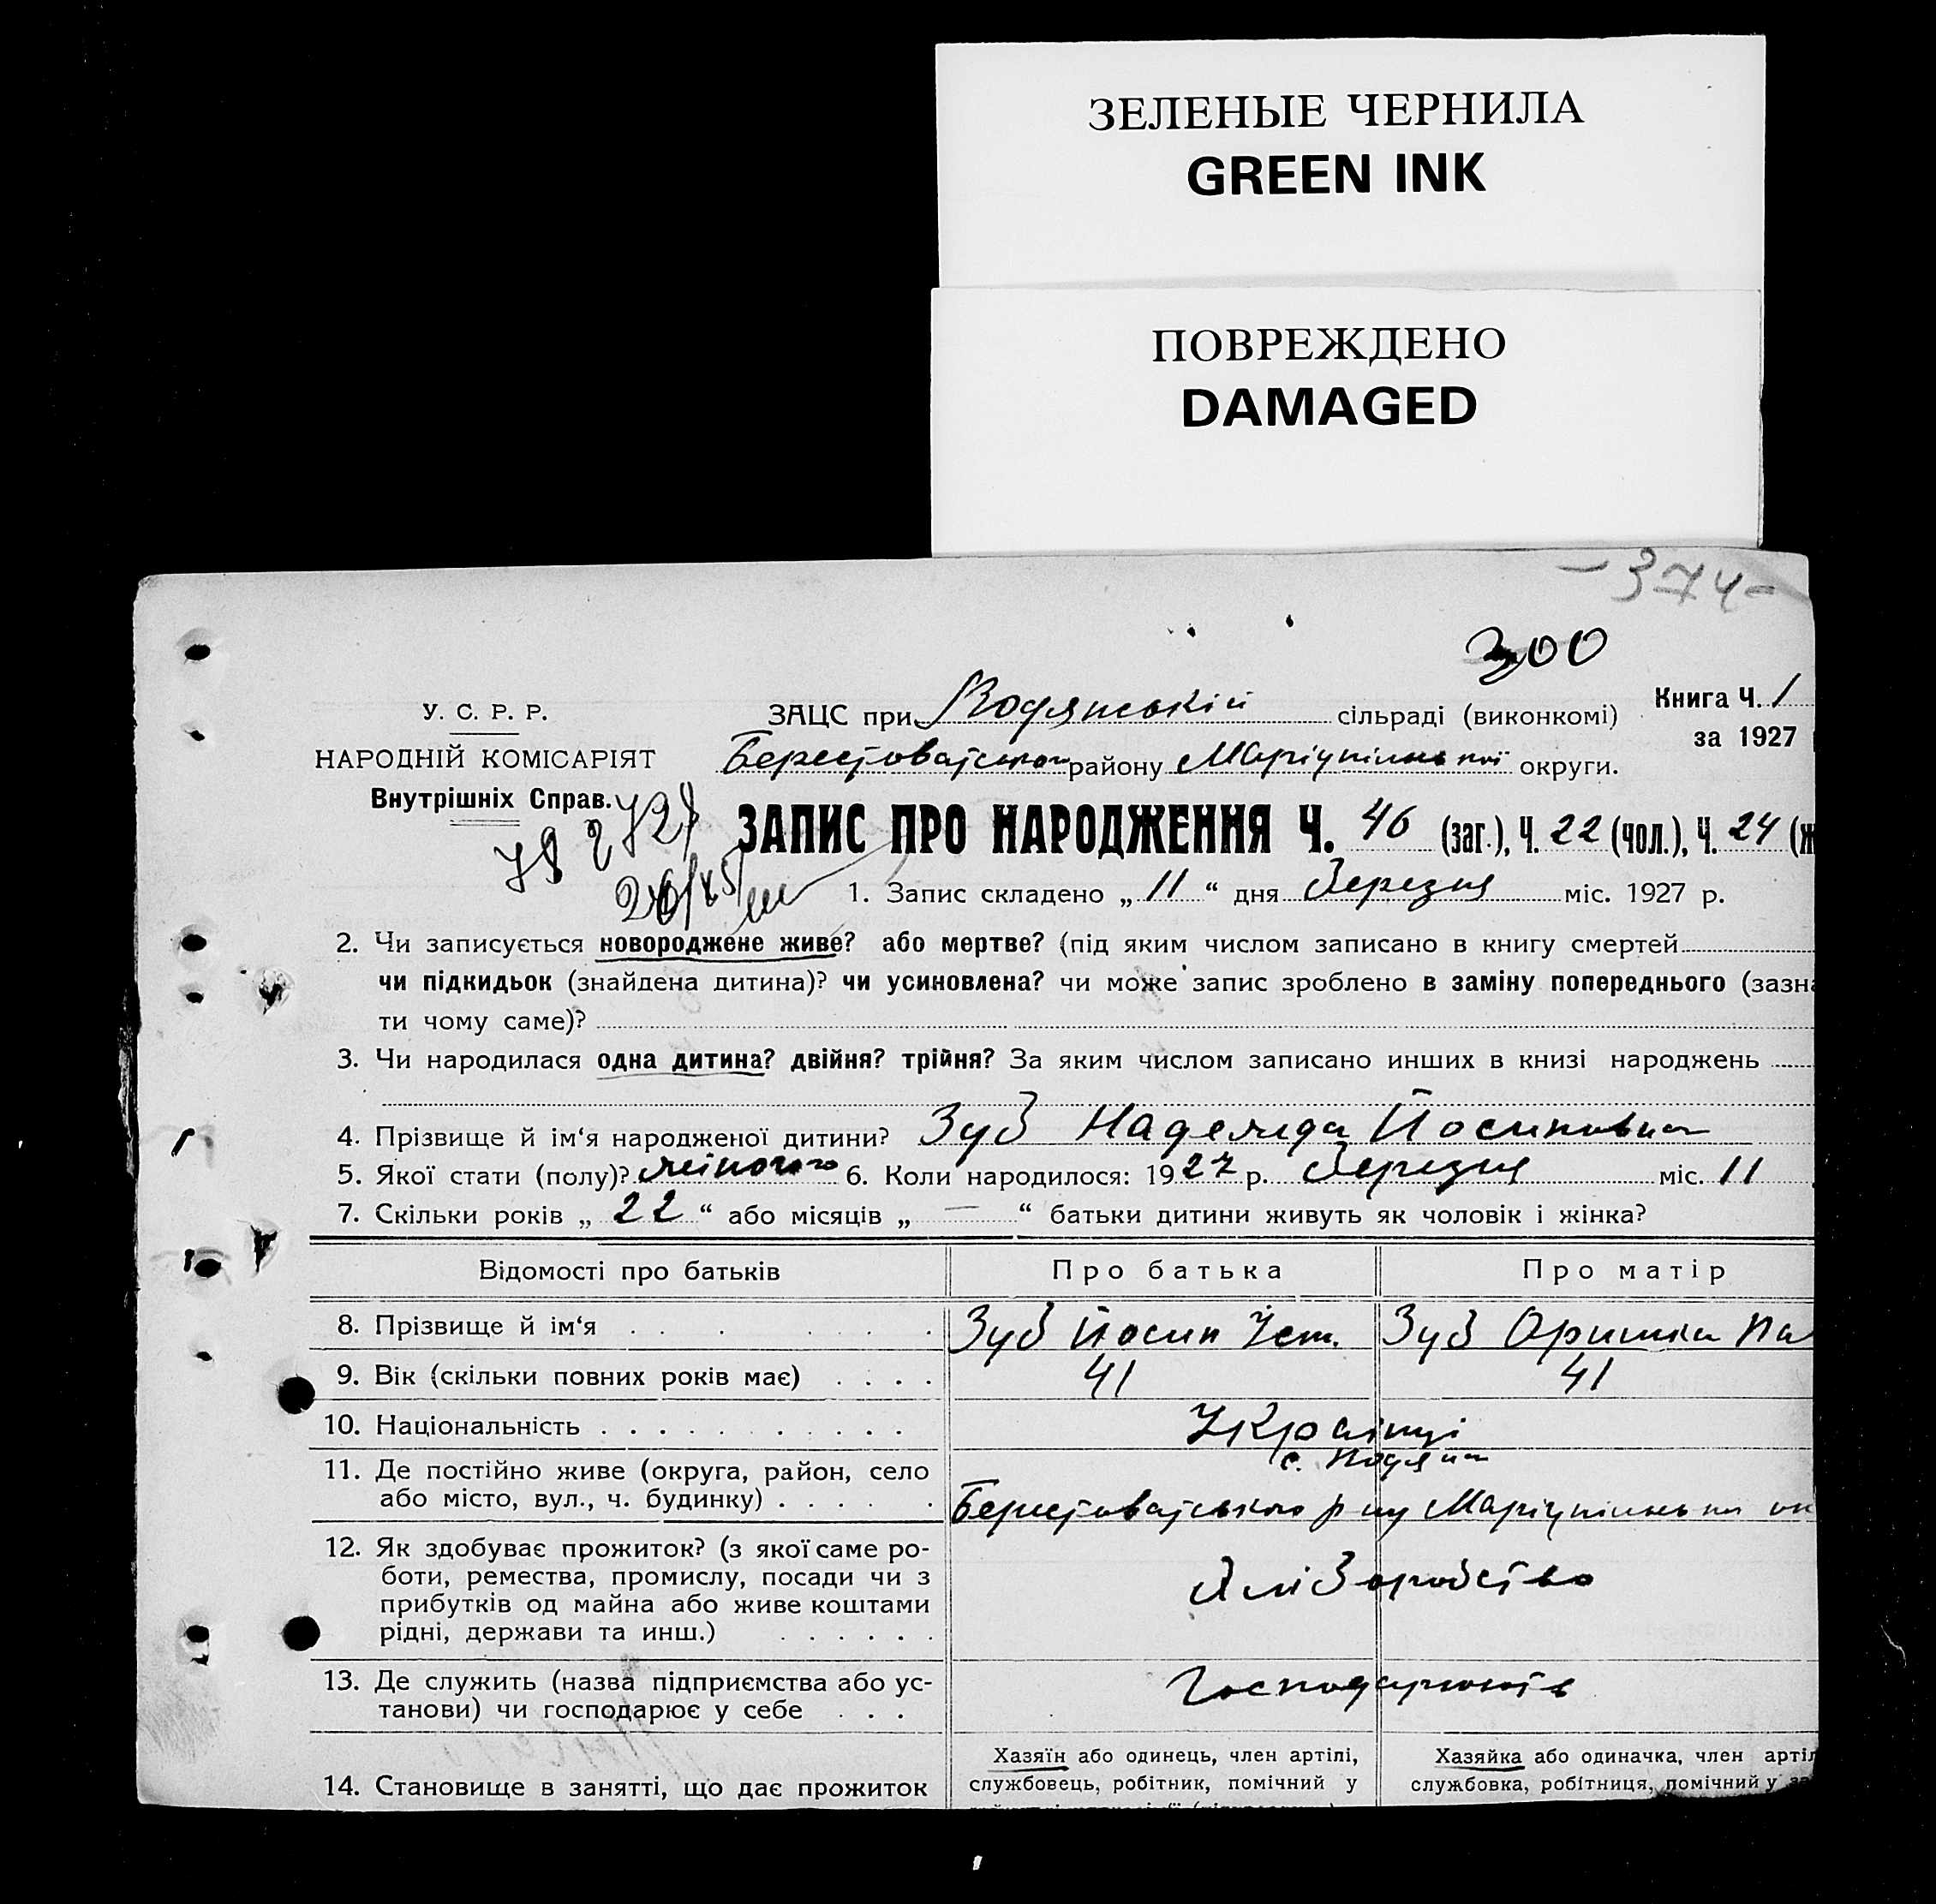 ЗЕЛЕНЫЕ ЧЕРНИЛА
GREEN INK
ПОВРЕЖДЕНО
DAMAGED
-374-
300
У. С. Р. Р.
НАРОДНІЙ КОМІСАРІЯТ
Внутрішніх Справ.
ЗАЦС при Водянській сільраді (виконкомі)
Книга Ч. 1
за 1927
Берестоватського району Маріупільської округи.
ЗАПИС ПРО НАРОДЖЕННЯ Ч. 46 (заг.), Ч. 22 (чол.), Ч. 24 (ж
1. Запис складено „ 11 “ дня Березня міс. 1927 р.
2. Чи записується новороджене живе? або мертве? (під яким числом записано в книгу смертей
чи підкидьок (знайдена дитина)? чи усиновлена? чи може запис зроблено в заміну попереднього (зазна
ти чому саме)?
3. Чи народилася одна дитина? двійня? трійня? За яким числом записано инших в книзі народжень
4. Прізвище й ім‘я народженої дитини? Зуб Надежда Йосиповна
5. Якої стати (полу)? жіночого 6. Коли народилося: 1927 р. Березня міс. 11
7. Скільки років „ 22 “ або місяців „ — “ батьки дитини живуть як чоловік і жінка?
Відомості про батьків Про батька Про матір
8. Прізвище й ім‘я . . . . . . . Зуб Йосип Уст. Зуб Оришка Па
9. Вік (скільки повних років має) . . . . 41 41
10. Національність . . . . . . . . . . . Українці
11. Де постійно живе (округа, район, село
с. Водяна
або місто, вул., ч. будинку) . . . . .
Берестоватського р-ну Маріупільської ок
12. Як здобуває прожиток? (з якої саме ро-
боти, ремества, промислу, посади чи з
прибутків од майна або живе коштами
рідні, держави та инш.) . . . . . .
Хліборобство
13. Де служить (назва підприємства або ус-
танови) чи господарює у себе . . .
Господарюють
14. Становище в занятті, що дає прожиток
Хазяїн або одинець, член артілі,
службовець, робітник, помічний у
Хазяйка або одиначка, член артіл
службовка, робітниця, помічний у за